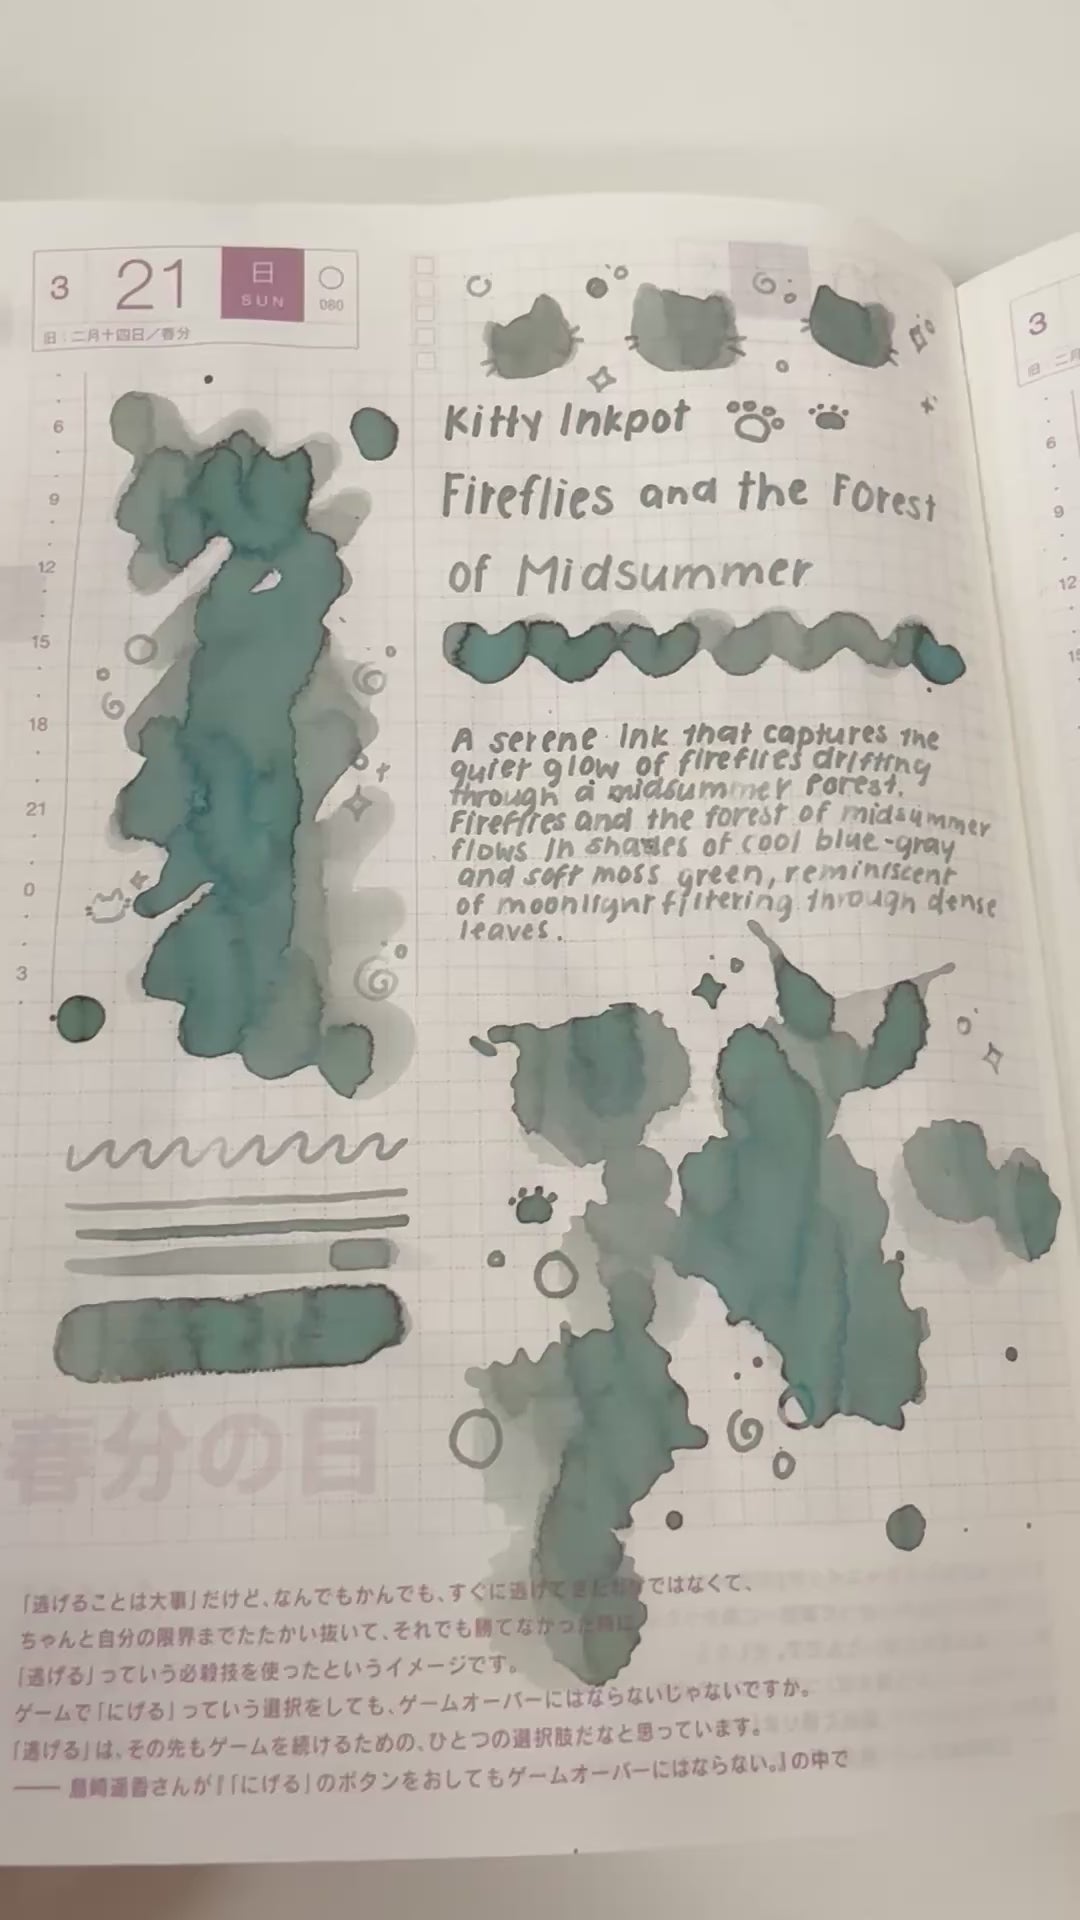 3 21 日 SUN 080
旧:二月十四日/春分
6
9
12
15
18
21
0
3
Kitty Inkpot
Fireflies and the Forest
of Midsummer
A serene ink that captures the
quiet glow of fireflies drifting
through a midsummer forest.
Fireflies and the forest of midsummer
flows in shades of cool blue-gray
and soft moss green, reminiscent
of moonlight filtering through dense
leaves.
春分の日
「逃げることは大事」だけど、なんでもかんでも、すぐに逃げてきたわけではなくて、
ちゃんと自分の限界までたたかい抜いて、それでも勝てなかった時に
「逃げる」っていう必殺技を使ったというイメージです。
ゲームで「にげる」っていう選択をしても、ゲームオーバーにはならないじゃないですか。
「逃げる」は、その先もゲームを続けるための、ひとつの選択肢だなと思っています。
―― 島崎遥香さんが『「にげる」のボタンをおしてもゲームオーバーにはならない。』の中で
3
旧 二
6
9
12